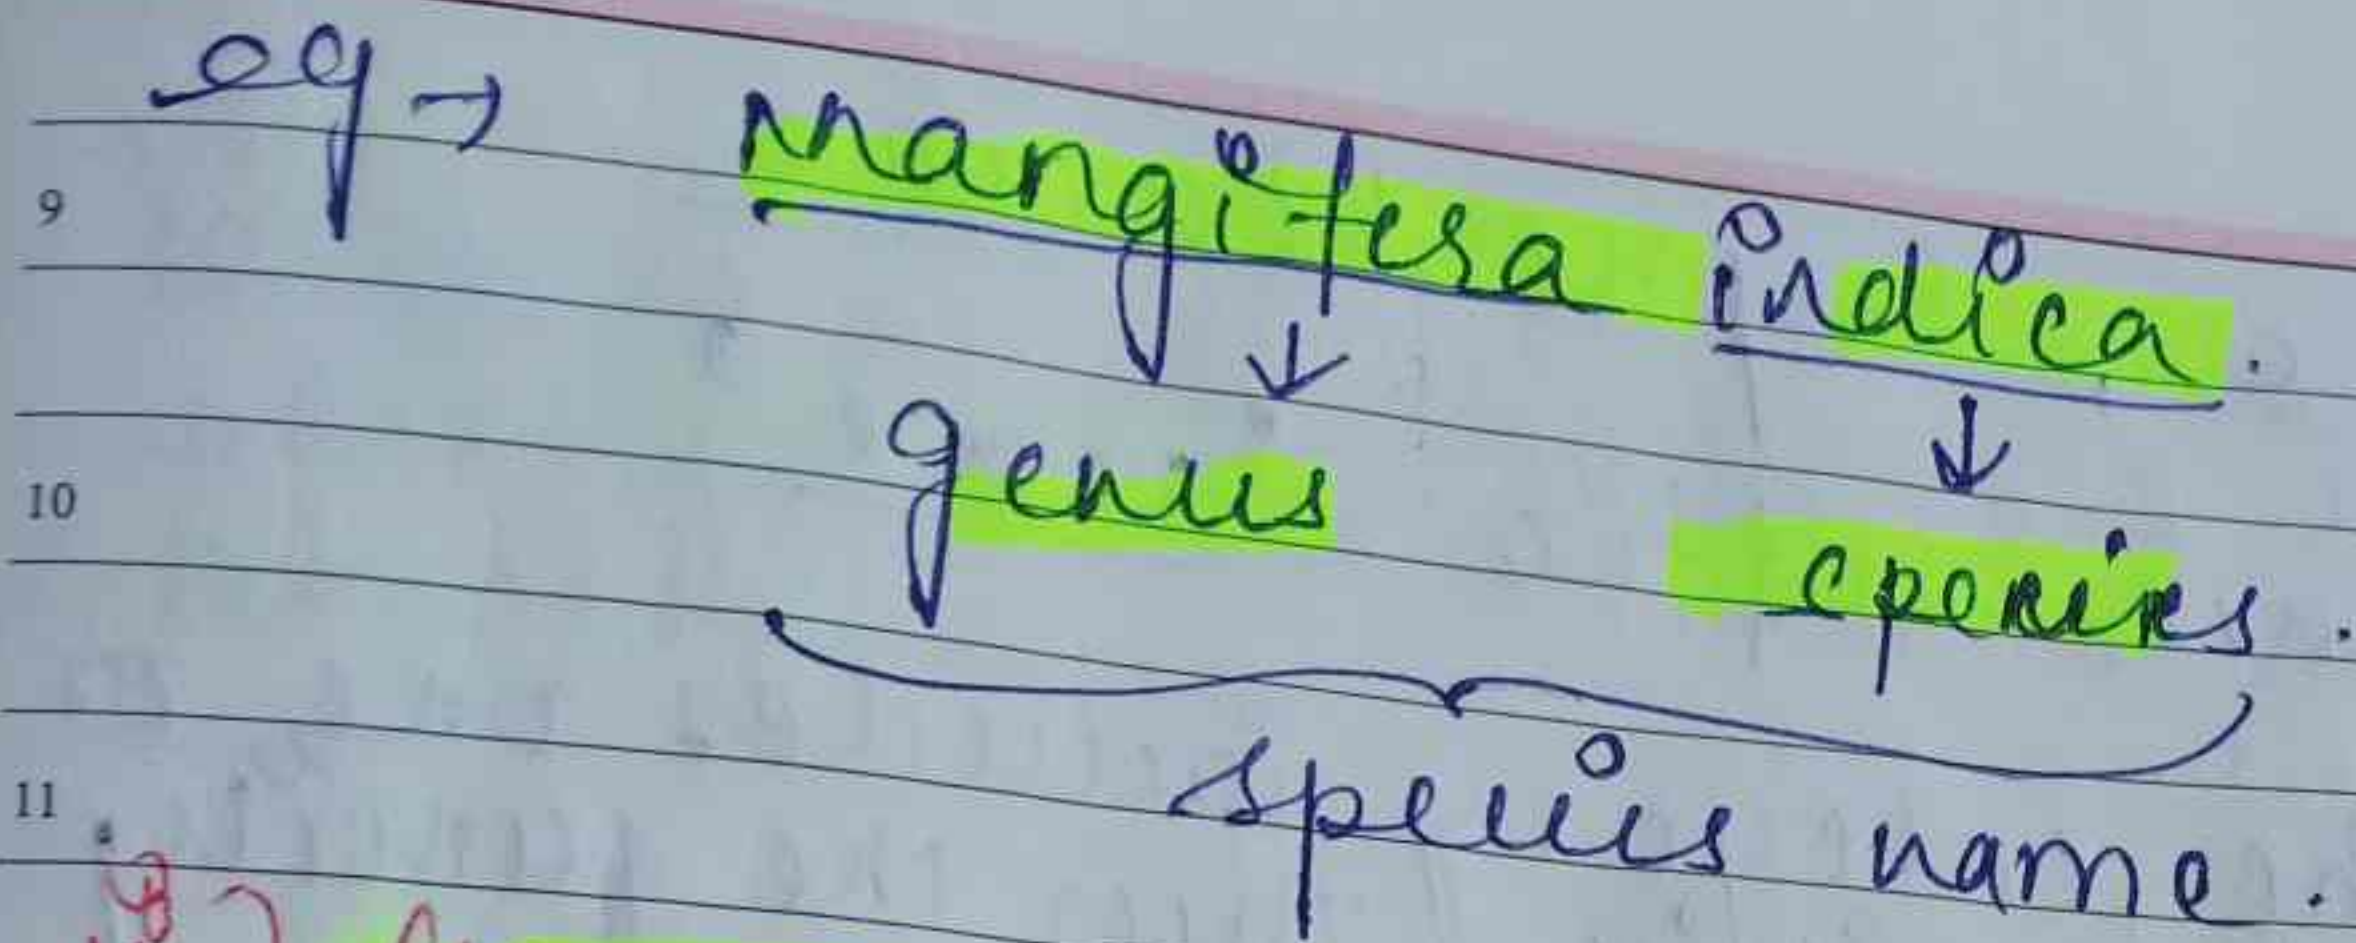 eg → Mangifera indica.
9
↓ ↓
10
genus species.
species name.
11